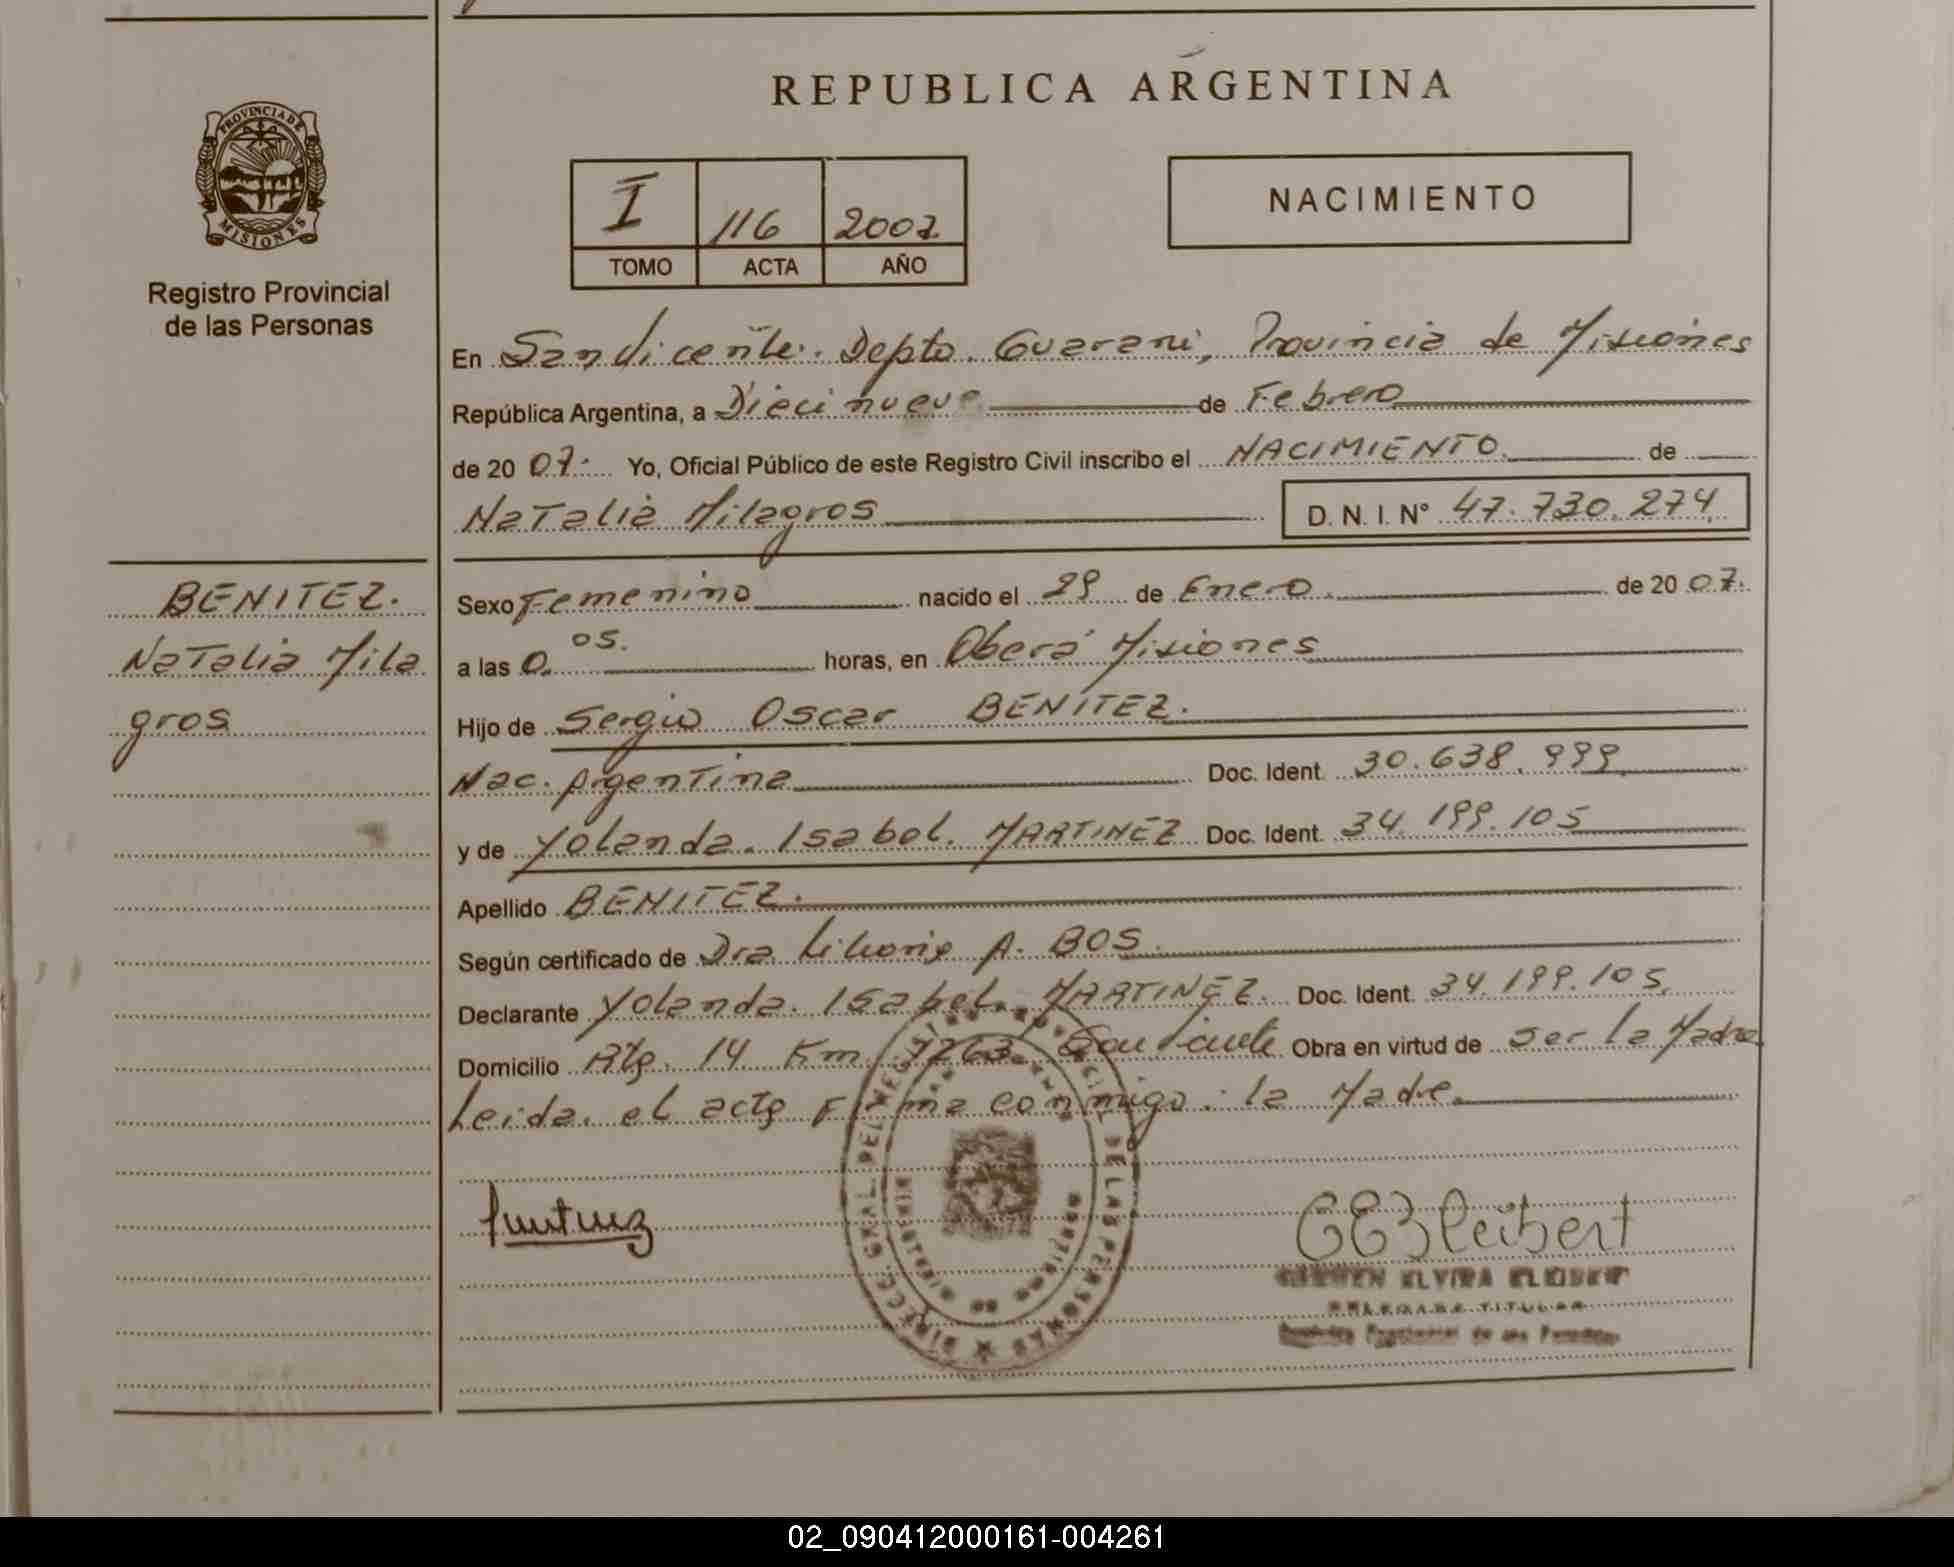 REPUBLICA ARGENTINA
PROVINCIA DE
MISIONES
Registro Provincial
de las Personas
I 116 2007
TOMO ACTA AÑO
NACIMIENTO
En San Vicente. Depto. Guarani, Provincia de Misiones
República Argentina, a Diecinueve de Febrero
de 20 07. Yo, Oficial Público de este Registro Civil inscribo el NACIMIENTO de
Natalia Milagros D. N. I. N° 47.730.274
BENITEZ.
Natalia Mila
gros
Sexo Femenino nacido el 29 de Enero de 20 07.
a las 0 05. horas, en Oberá Misiones
Hijo de Sergio Oscar BENITEZ.
Nac. Argentina Doc. Ident. 30.638.999
y de Yolanda. Isabel. MARTINEZ Doc. Ident. 34.199.105
Apellido BENITEZ.
Según certificado de Dra Liliana A. BOS.
Declarante Yolanda. Isabel. MARTINEZ. Doc. Ident. 34.199.105.
Domicilio 14 Km San Vicente Obra en virtud de ser la Madre
Leida. el acta Firma conmigo. la Madre.
DE LAS PERSONAS
ELVIRA
TITULAR
02_090412000161-004261